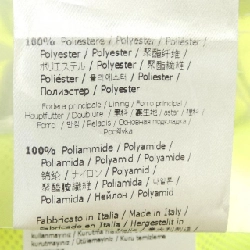 100% Poliestere / Polyester / Poliéster /
Polyester / Polyester / 聚酯纤维 /
ポリエステル / Polyester / 聚酯纖維 /
Poliéster / 폴리에스터 / Polyester /
Полиэстер / Polyester
Fodera principale / Lining / Forro principal /
Hauptfutter / Doublure / 里料 / 裏生地 / astar / 裡料 /
Forro / 안감 / Pelapis / Основная подкладка /
Podšívka
100% Poliammide / Polyamide /
Poliamida / Polyamid / Polyamide /
锦纶 / ナイロン / Polyamid /
聚醯胺纖維 / Poliamida / 나일론 /
Poliamida / Нейлон / Polyamid
Fabbricato in Italia / Made in Italy /
en Italia / Hergestellt in